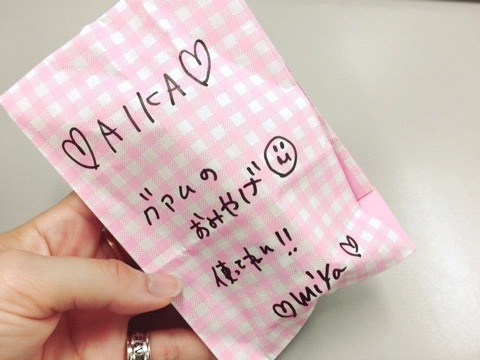 ♡AIKA♡
グァムの
おみやげ
使ってネ!!
♡mika♡